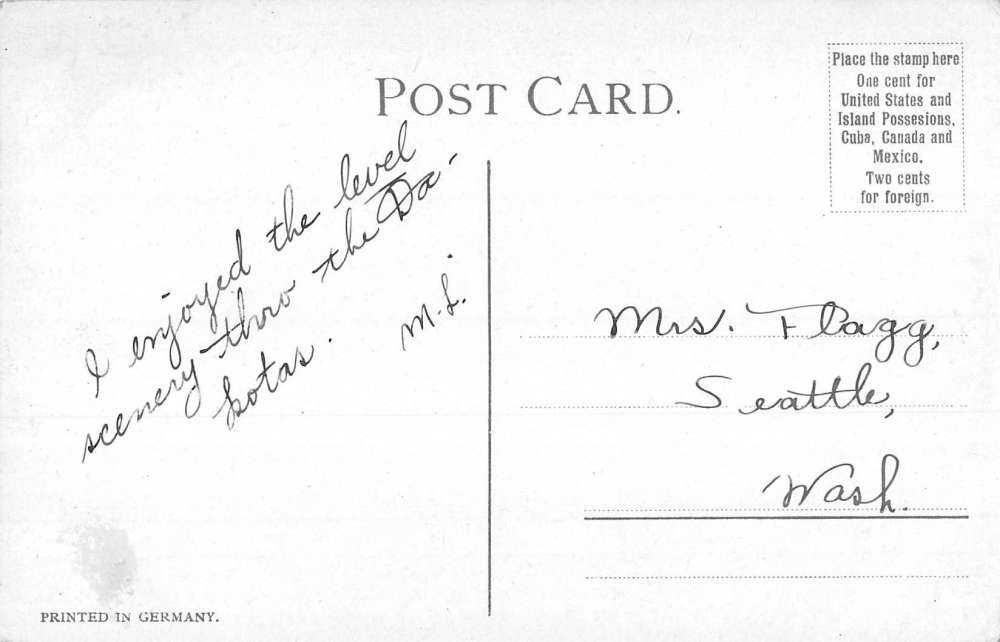 POST CARD.
Place the stamp here
One cent for
United States and
Island Possesions,
Cuba, Canada and
Mexico.
Two cents
for foreign.
I enjoyed the level
scenery thro the Da-
kotas.
M.L.
Mrs. Flagg,
Seattle,
Wash.
PRINTED IN GERMANY.